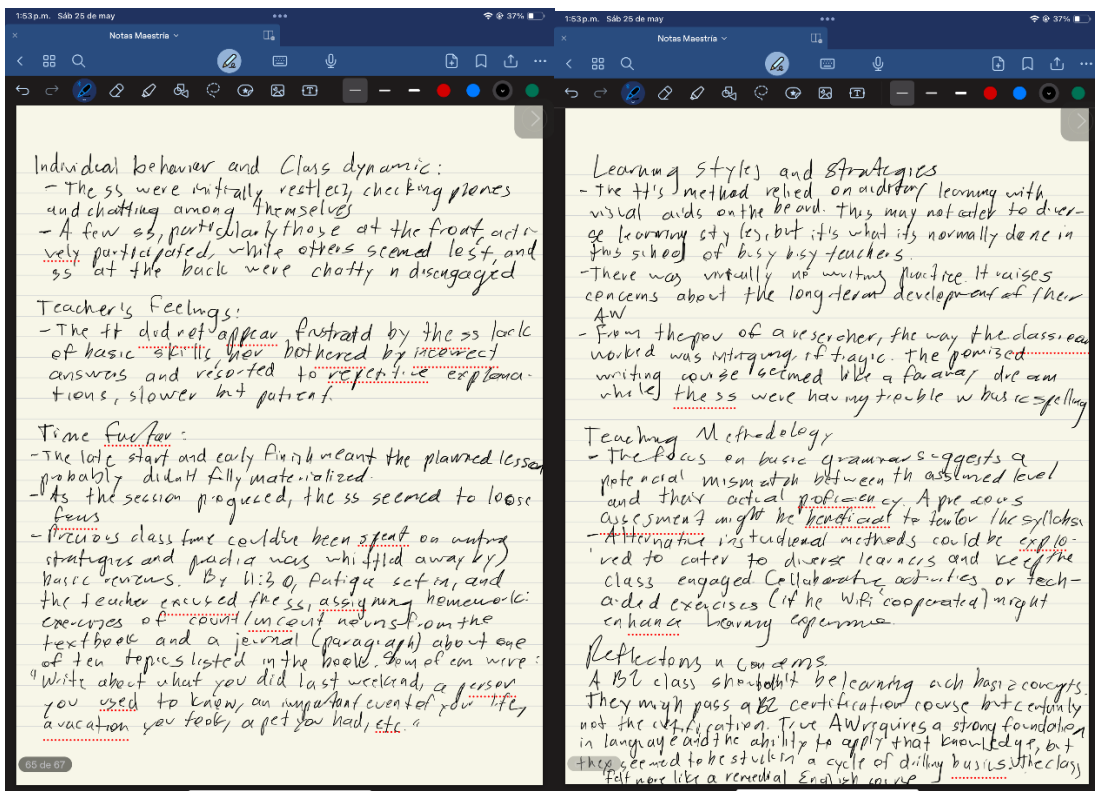 1:53 p.m. Sáb 25 de may
37%
Notas Maestría
Individual behavior and Class dynamic:
- The ss were initially restless, checking phones
and chatting among themselves
- A few ss, particularly those at the front, acti-
vely participated, while others seemed lost, and
ss at the back were chatty n disengaged
Teacher's Feelings:
- The tt did not appear frustratd by the ss lack
of basic skills, nor bothered by incorrect
answers and resorted to repetitive explana-
tions, slower but patient.
Time factor:
- The late start and early finish meant the planned lesson
probably didn't fully materialized.
- As the session progresed, the ss seemed to loose
focus
- Precious class time could've been spent on writing
strategies and practice was whittled away by
basic reviews. By 11:30, fatigue set in, and
the teacher excused the ss, assigning homework:
exercises of count/uncount nouns from the
textbook and a journal (paragraph) about one
of ten topics listed in the book. Som of em were:
"Write about what you did last weekend, a person
you used to know, an important event of your life,
a vacation you took, a pet you had, etc."
65 de 67
1:53 p.m. Sáb 25 de may
37%
Notas Maestría
Learning styles and strategies
- The tt's method relied on auditory learning with
visual aids on the board. This may not cater to diver-
se learning styles, but it's what its normally done in
this school of busy bisy teachers.
- There was virtually no writing practice. It raises
concerns about the long-term development of their
AW
- From the pov of a rescrcher, the way the classroom
worked was intriguing, if tragic. The promized
writing course seemed like a faraway dream
while the ss were having trouble w basic spelling
Teaching Methodology
- The focus on basic grammar suggests a
potencial mismatch between th assumed level
and their actual poficiency. A previous
assesment might be beneficial to tailor the syllabus
- Alternative instructional methods could be explo-
red to cater to diverse learners and keep the
class engaged Collaborative activities or tech-
aided exercises (if he Wifi cooperated) might
enhance learning experience.
Reflections n concerns.
A B2 class shouldn't be learning such basic concepts.
They migh pass a B2 certification course but certainly
not the certification. True AW requires a strong foundation
in language and the ability to apply that knowledge, but
they seemed to be stuck in a cycle of drilling basics. The class
felt more like a remedial English course